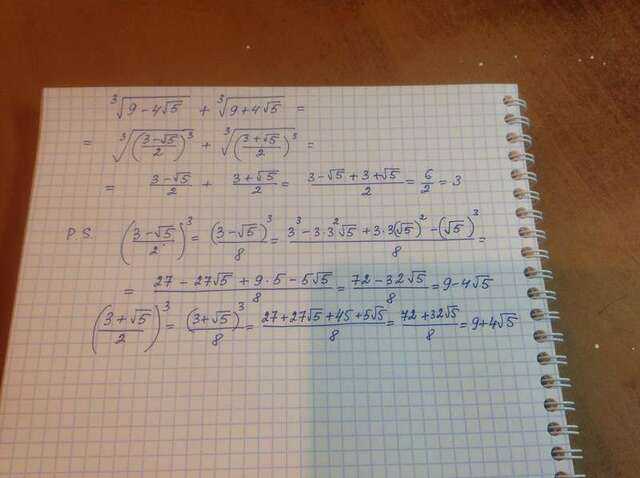 ∛(9-4√5) + ∛(9+4√5) =
= ∛((3-√5)/2)³ + ∛((3+√5)/2)³ =
= (3-√5)/2 + (3+√5)/2 = (3-√5+3+√5)/2 = 6/2 = 3
P.S. ((3-√5)/2)³ = (3-√5)³/8 = (3³-3·3²√5+3·3(√5)²-(√5)³)/8 =
= (27-27√5+9·5-5√5)/8 = (72-32√5)/8 = 9-4√5
((3+√5)/2)³ = (3+√5)³/8 = (27+27√5+45+5√5)/8 = (72+32√5)/8 = 9+4√5